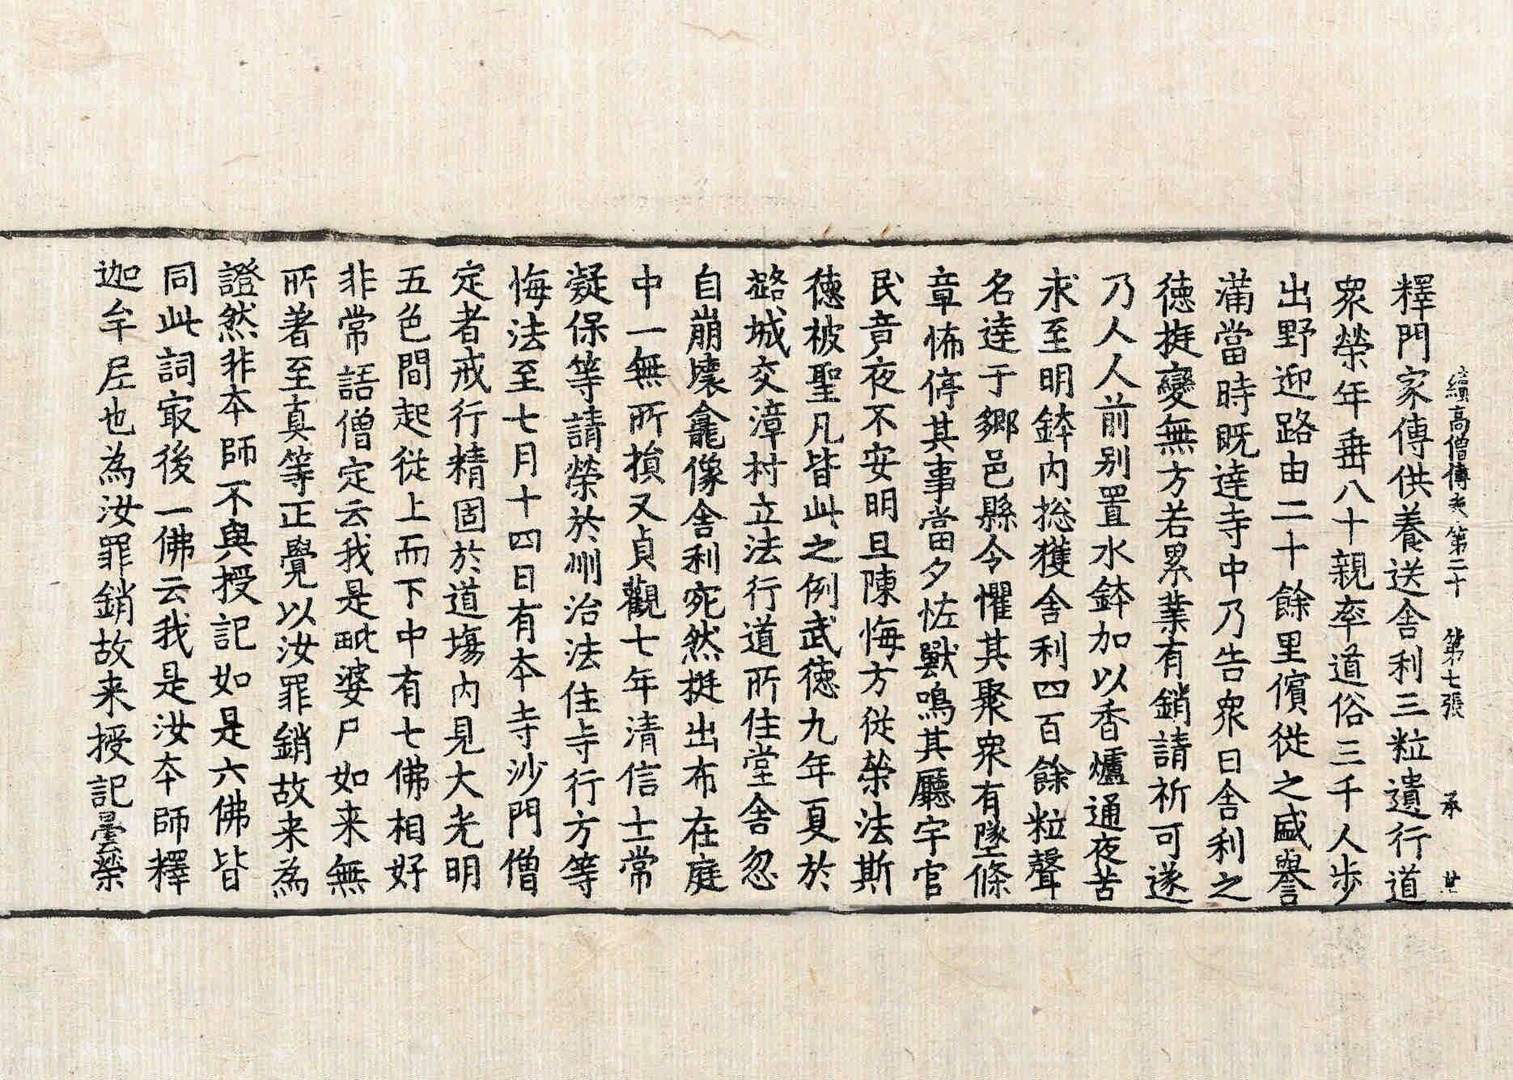 續高僧傳卷第二十 第七張 承 廿
釋門家傳供養送舍利三粒遺行道
衆榮年垂八十親率道俗三千人步
出野迎路由二十餘里儐從之盛譽
滿當時既達寺中乃告衆曰舍利之
德挺變無方若累業有銷請祈可遂
乃人人前別置水鉢加以香爐通夜苦
求至明鉢內㧾獲舍利四百餘粒聲
名達于鄉邑縣令懼其聚衆有墜條
章怖停其事當夕怪獸鳴其廳宇官
民竟夜不安明旦陳悔方從榮法斯
德被聖凡皆此之例武德九年夏於
潞城交漳村立法行道所住堂舍忽
自崩壞龕像舍利宛然挺出布在庭
中一無所損又貞觀七年清信士常
凝保等請榮於州治法住寺行方等
悔法至七月十四日有本寺沙門僧
定者戒行精固於道場內見大光明
五色間起從上而下中有七佛相好
非常語僧定云我是毗婆尸如来無
所著至真等正覺以汝罪銷故来為
證然非本師不與授記如是六佛皆
同此詞㝡後一佛云我是汝本師釋
迦牟尼也為汝罪銷故来授記曇榮